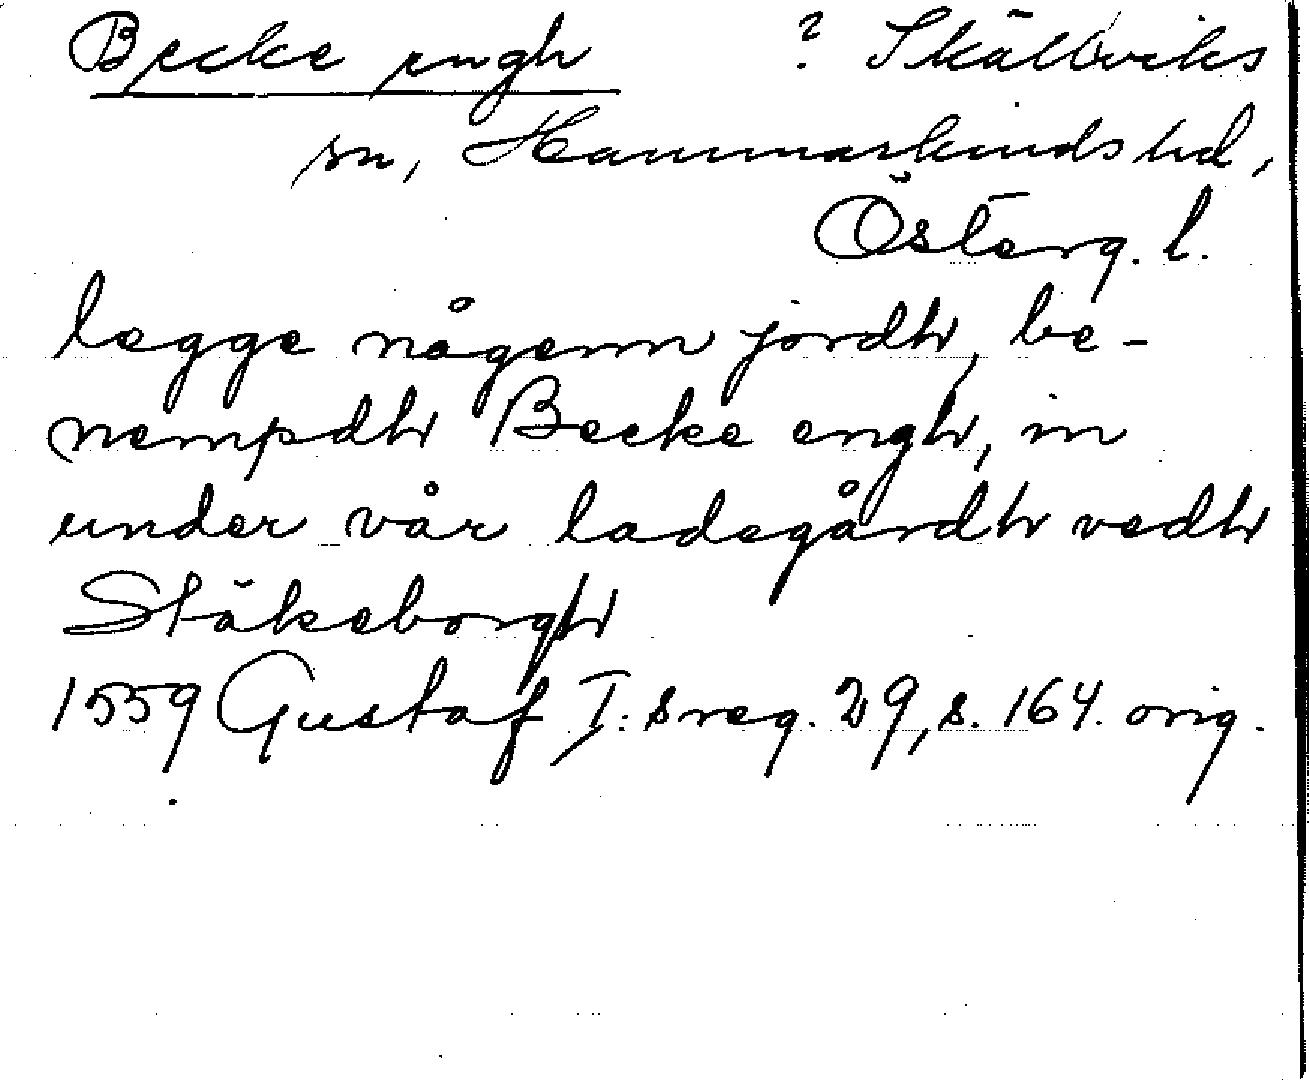 Becke engh ? Skällviks
sn, Hammarkinds hd,
Österg. l.
legge någenn jordh, be-
nempdh Becke engh, in
under vår ladegårdh vedh
Stäkeborgh
1559 Gustaf I:s reg. 29, s. 164. orig.